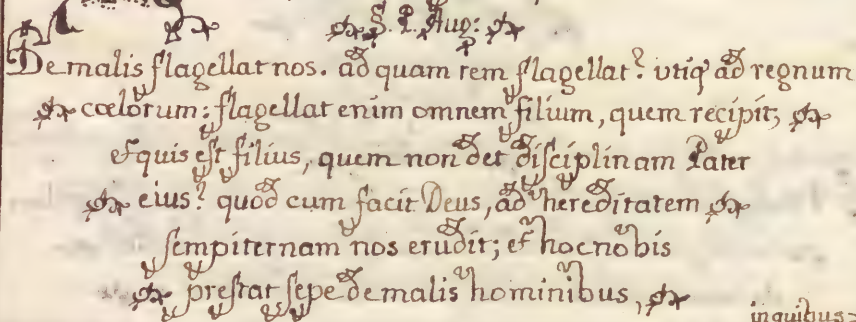 S. P. Aug:
De malis flagellat nos. ad quam rem flagellat? vtiq' ad regnum
cœlorum: flagellat enim omnem filium, quem recipit;
et quis est filius, quem non det disciplinam Pater
eius? quod cum facit Deus, ad hereditatem
sempiternam nos erudit; et hoc nobis
prestat sepe de malis hominibus,
inquibus=